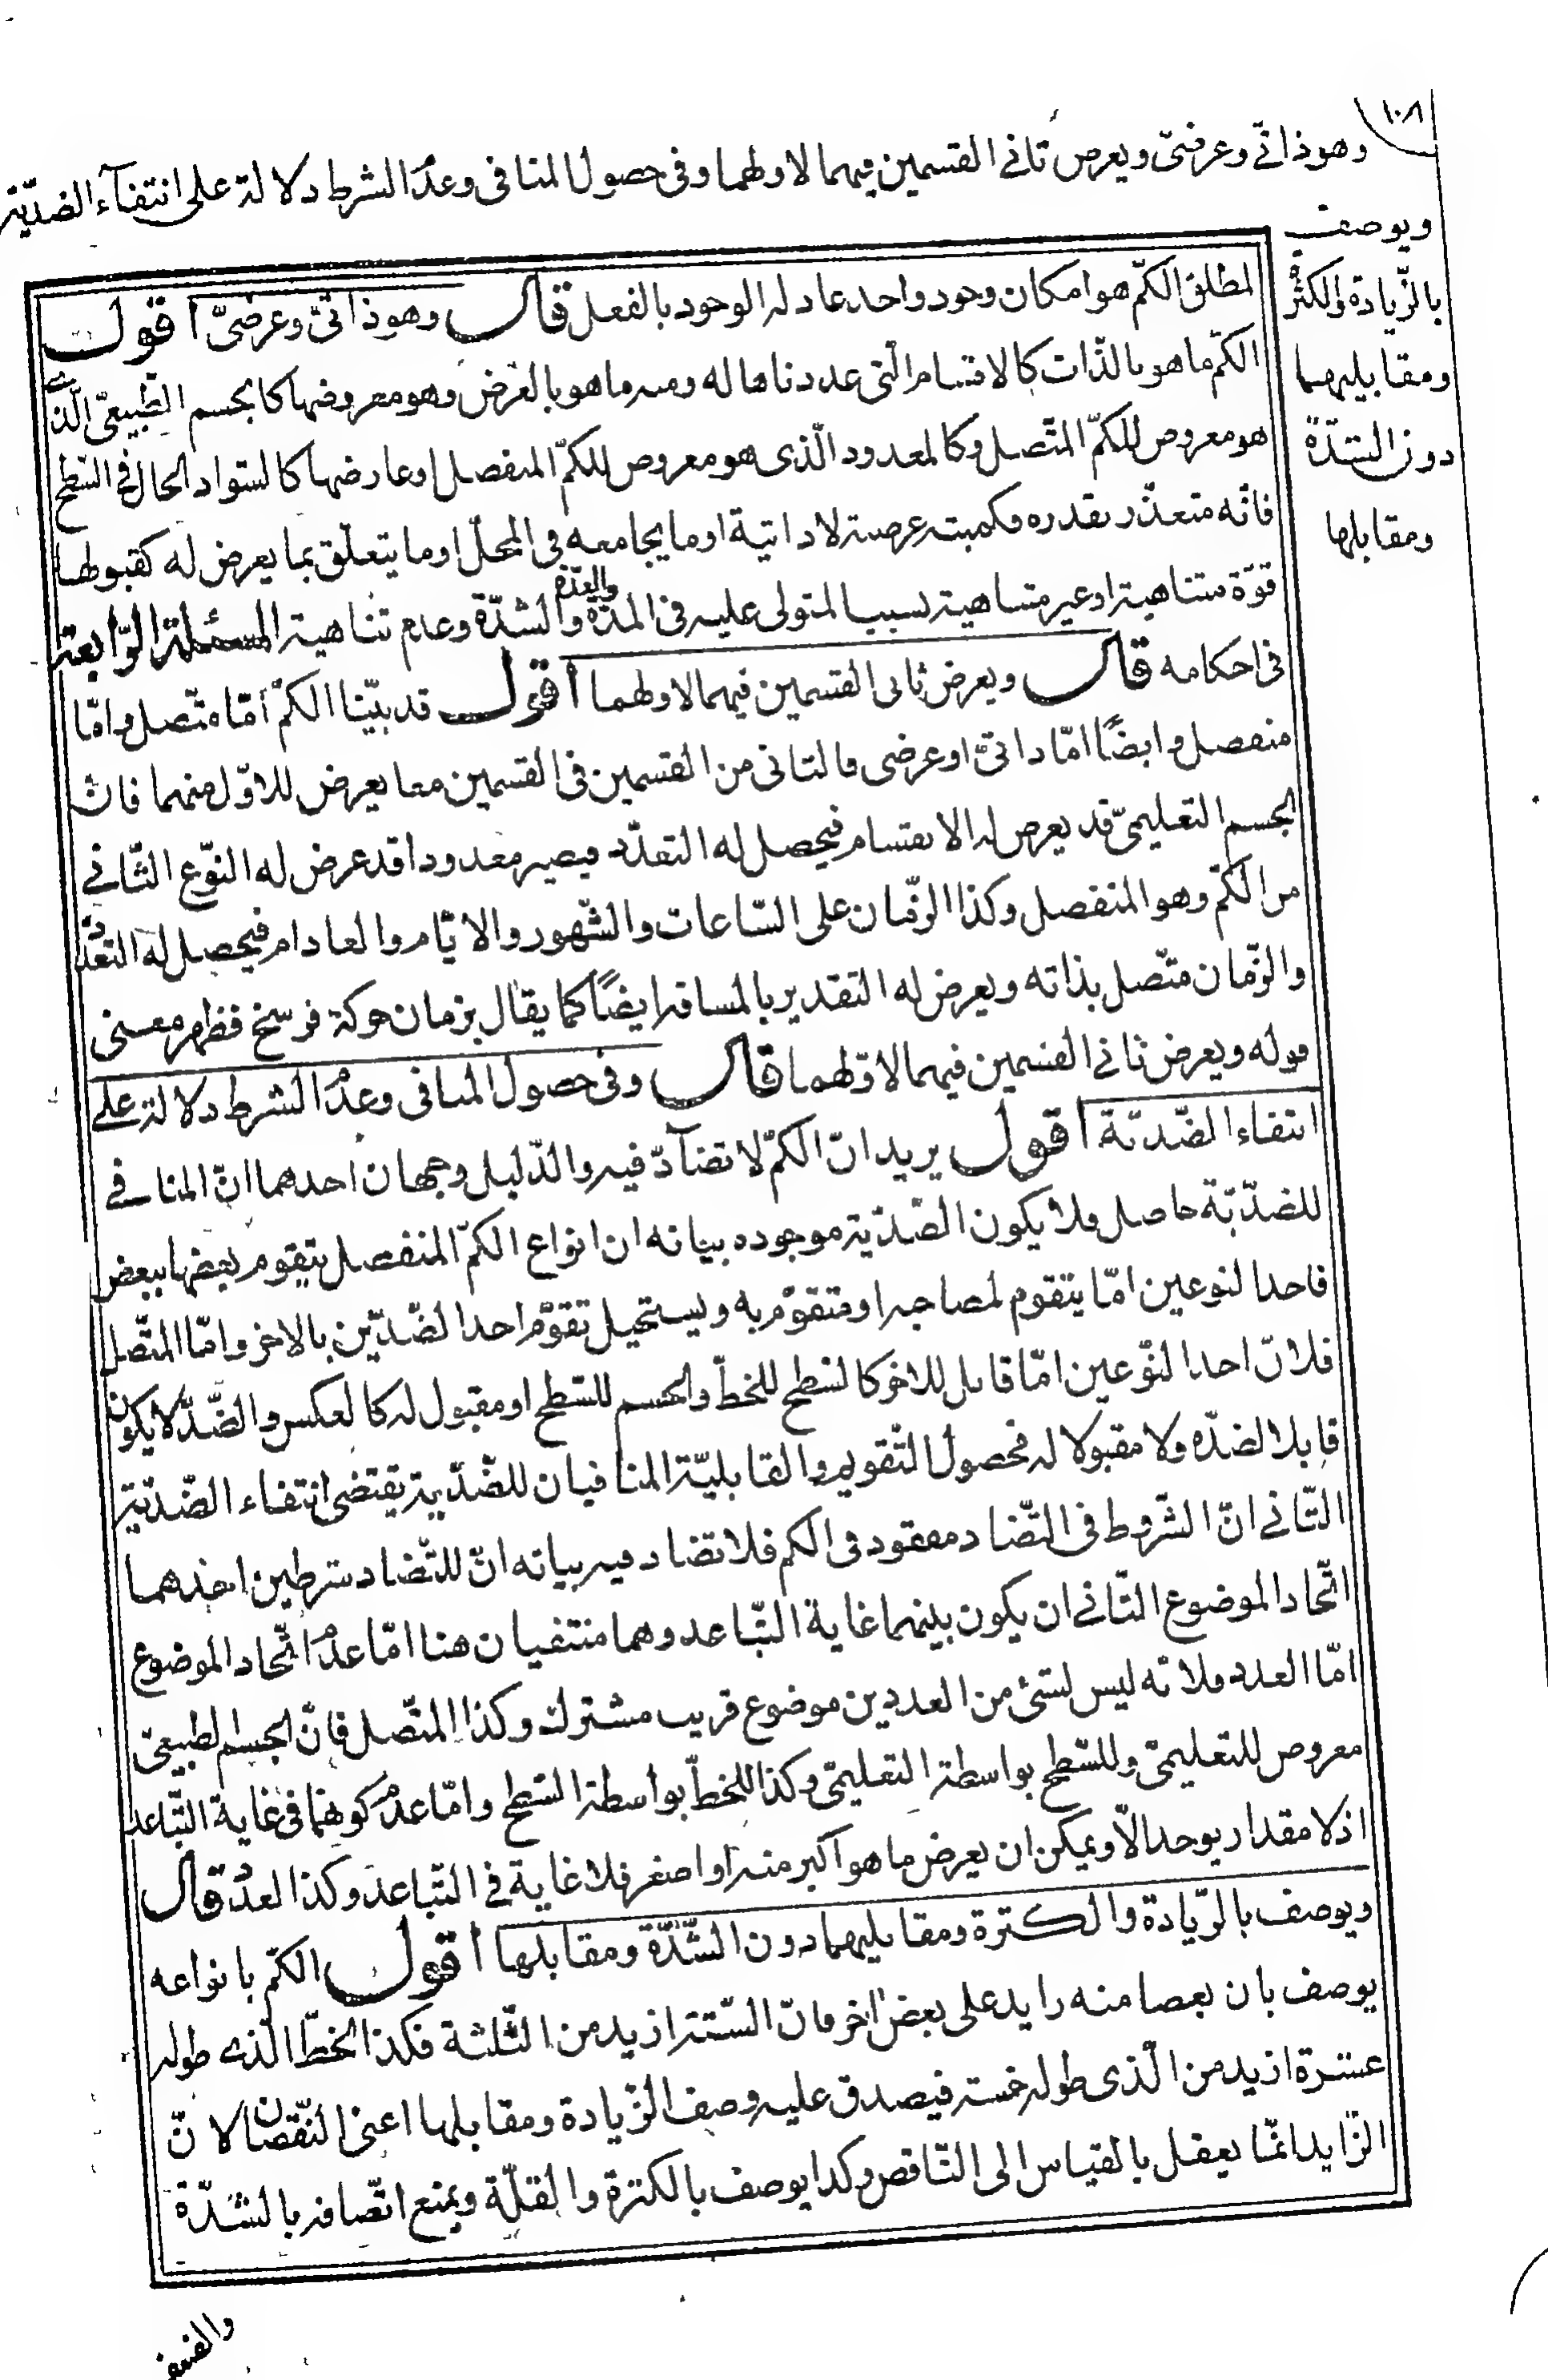 ١٠٨
وهو ذاتىّ وعرضىّ ويعرض ثانى القسمين فيهما لاولهما وفى حصول المنافى وعدم الشرط دلالة على انتفآء الضدّية
ويوصف
بالزّيادة والكثرة
ومقابليهما
دون الشدّة
ومقابلها
لمطلق الكمّ هو امكان وجود واحد عاد له الوجود بالفعل قال وهو ذاتىّ وعرضىّ اقول
الكمّ ما هو بالذّات كالاقسام الّتى عددناها له ومنه ما هو بالعرض وهو معروضها كالجسم الطّبيعىّ الّذى
هو معروض للكمّ المتّصل وكالمعدود الّذى هو معروض للكمّ المنفصل او عارضها كالسّواد الحال فى السّطح
فانّه متعذّر بقدره فكميته عرضية لا ذاتية او ما يجامعه فى المحلّ او ما يتعلّق بما يعرض له كقبولها
قوّة متناهية او غير متناهية بسبب المتولى عليه فى المدّة والعدّة والشدّة وعدم تناهية المسئلة الرّابعة
فى احكامه قال ويعرض ثانى القسمين فيهما لاولهما اقول قد بيّنا الكمّ امّا متّصل وامّا
منفصل وايضًا امّا ذاتىّ او عرضى فالثانى من القسمين فى القسمين معا يعرض للاوّل منهما فان
الجسم التعليمىّ قد يعرض له الانقسام فيحصل له التعدّد فيصير معدودا قد عرض له النّوع الثّانى
من الكمّ وهو المنفصل وكذا الزّمان على السّاعات والشّهور والايّام والعادام فيحصل له التعدّد
والزّمان متّصل بذاته ويعرض له التقدير بالمسافة ايضًا كما يقال بزمان حركة فرسخ فظهر معنى
قوله ويعرض ثانى القسمين فيهما لاوّلهما قال وفى حصول المنافى وعدم الشرط دلالة على
انتفاء الضّدّيّة اقول يريد انّ الكمّ لا تضآدّ فيه والدّليل وجهان احدهما انّ المنافى
للضدّيّة حاصل فلا يكون الضّدّيّة موجوده بيانه ان انواع الكمّ المنفصل يتقوم بعضها ببعض
فاحد النوعين امّا يتقوم لمصاحبه او متقوّم به ويستحيل تقوّم احد الضّدّين بالاخر وامّا المتّصل
فلانّ احد النّوعين امّا قابل للاخر كالسّطح للخطّ والجسم للسّطح او مقبول له كالعكس والضّدّ لا يكون
قابلا لضدّه ولا مقبولا له فحصول التّقويم والقابليّة المنافيان للضّدّية يقتضى انتفاء الضّدّيّة
الثّانى انّ الشّروط فى التّضاد مفقود فى الكم فلا تضاد فيه بيانه انّ للتّضاد شرطين احدهما
اتّحاد الموضوع الثّانى ان يكون بينهما غاية التّباعد وهما منتفيان هنا امّا عدم اتّحاد الموضوع
امّا العدد فلانّه ليس لشىء من العددين موضوع قريب مشترك وكذا المتّصل فانّ الجسم الطبيعىّ
معروض للتعليمىّ وللسّطح بواسطة التعليمىّ وكذا للخطّ بواسطة السّطح وامّا عدم كونهما فى غاية التّباعد
اذ لا مقدار يوجد الّا ويمكن ان يعرض ما هو اكبر منه او اصغر فلا غاية فى التّباعد وكذا العدد قال
ويوصف بالزّيادة والكثرة ومقابليهما دون الشّدّة ومقابلها اقول الكمّ بانواعه
يوصف بان بعضا منه زايد على بعض اخر فانّ السّتّة ازيد من الثّلثة فكذا الخطّ الّذى طوله
عشرة ازيد من الّذى طوله خمسة فيصدق عليه وصف الزّيادة ومقابلها اعنى النّقصان لانّ
الزّايد انمّا يعقل بالقياس الى النّاقص وكذا يوصف بالكثرة والقلّة ويمنع اتّصافه بالشدّة
والضعف